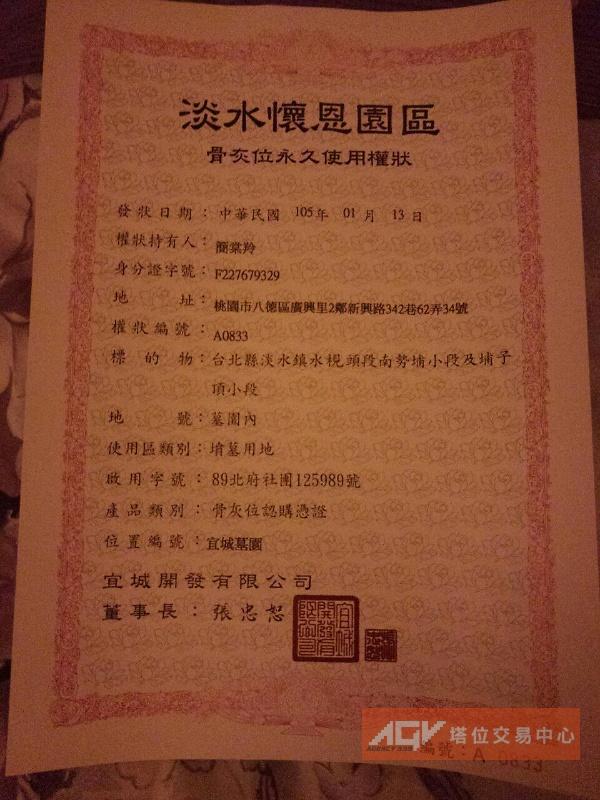 淡水懷恩園區
骨灰位永久使用權狀
發狀日期：中華民國 105年 01月 13日
權狀持有人：簡棠羚
身分證字號：F227679329
地址：桃園市八德區廣興里2鄰新興路342巷62弄34號
權狀編號：A0833
標的物：台北縣淡水鎮水梘頭段南勢埔小段及埔子
頂小段
地號：墓園內
使用區類別：墳墓用地
啟用字號：89北府社團125989號
產品類別：骨灰位認購憑證
位置編號：宜城墓園
宜城開發有限公司
董事長：張忠恕
宜城開發有限公司
AGV 塔位交易中心
編號：A 0833